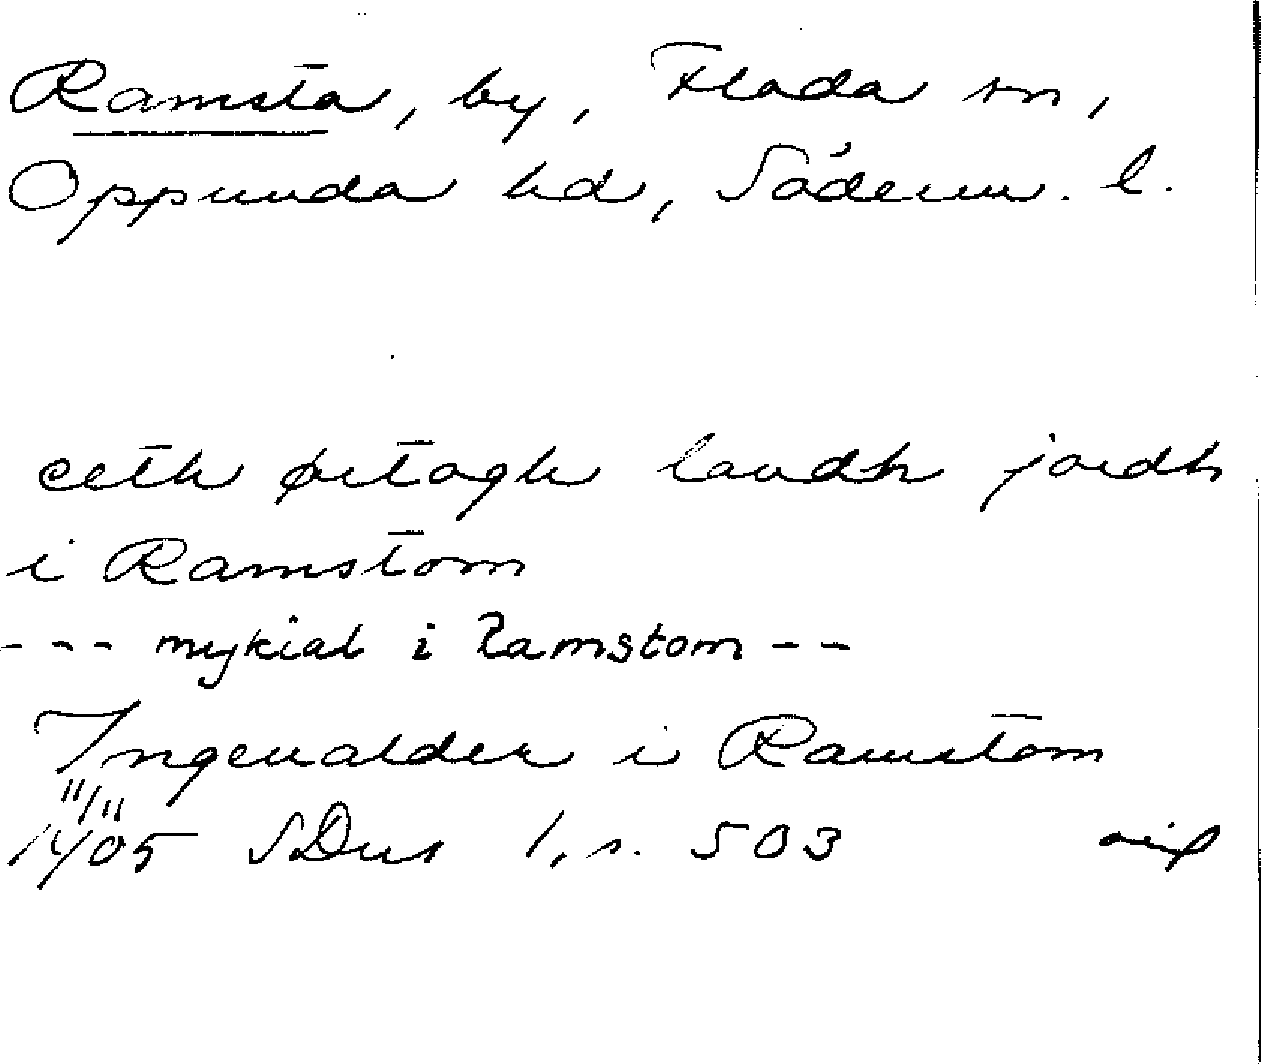 Ramsta, by, Floda sn,
Oppunda hd, Söderm. l.
eeth ørtogh landh jordh
i Ramstom
--- mykiäl i Ramstom --
Ingeualder i Ramstom
11/11
1405 SDns 1, s. 503